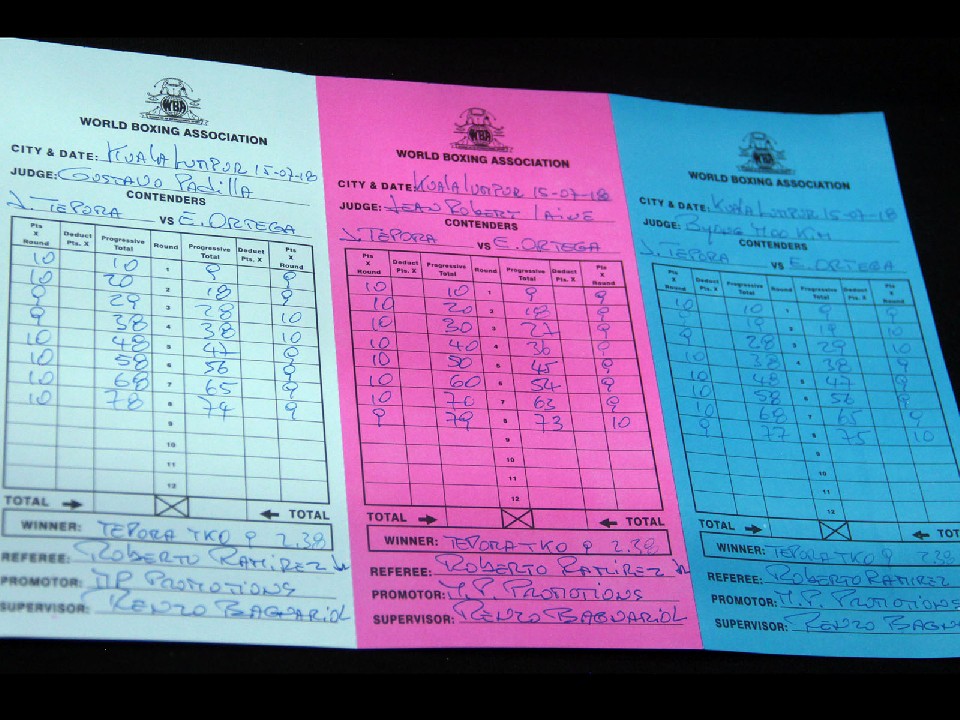 WBA
WORLD BOXING ASSOCIATION
CITY & DATE: KUALA LUMPUR 15-07-18
JUDGE: GUSTAVO PADILLA
CONTENDERS
J. TEPORA VS E. ORTEGA
Pts X Round Deduct Pts. X Progressive Total Round Progressive Total Deduct Pts. X Pts X Round
10 10 1 9 9
10 20 2 18 9
9 29 3 28 10
9 38 4 38 10
10 48 5 47 9
10 58 6 56 9
10 68 7 65 9
10 78 8 74 9
9
10
11
12
TOTAL TOTAL
WINNER: TEPORA TKO 9 2.38
REFEREE: ROBERTO RAMIREZ Jr
PROMOTOR: M.P. PROMOTIONS
SUPERVISOR: RENZO BAGNARIOL
WBA
WORLD BOXING ASSOCIATION
CITY & DATE: KUALA LUMPUR 15-07-18
JUDGE: JEAN ROBERT LAINE
CONTENDERS
J. TEPORA VS E. ORTEGA
Pts X Round Deduct Pts. X Progressive Total Round Progressive Total Deduct Pts. X Pts X Round
10 10 1 9 9
10 20 2 18 9
10 30 3 27 9
10 40 4 36 9
10 50 5 45 9
10 60 6 54 9
10 70 7 63 9
9 79 8 73 10
9
10
11
12
TOTAL TOTAL
WINNER: TEPORA TKO 9 2.38
REFEREE: ROBERTO RAMIREZ Jr
PROMOTOR: M.P. PROMOTIONS
SUPERVISOR: RENZO BAGNARIOL
WORLD BOXING ASSOCIATION
CITY & DATE: KUALA LUMPUR 15-07-18
JUDGE: KIM
CONTENDERS
J. TEPORA VS E. ORTEGA
Pts X Round Deduct Pts. X Progressive Total Round Progressive Total Deduct Pts. X Pts X Round
10 10 1 9 9
9 19 2 19 10
9 28 3 29 10
10 38 4 38 9
10 48 5 47 9
10 58 6 56 9
10 68 7 65 9
9 77 8 75 10
9
10
11
12
TOTAL TOT
WINNER: TEPORA TKO 9 2.38
REFEREE: ROBERTO RAMIREZ
PROMOTOR: M.P. PROMOTIONS
SUPERVISOR: RENZO BAGN